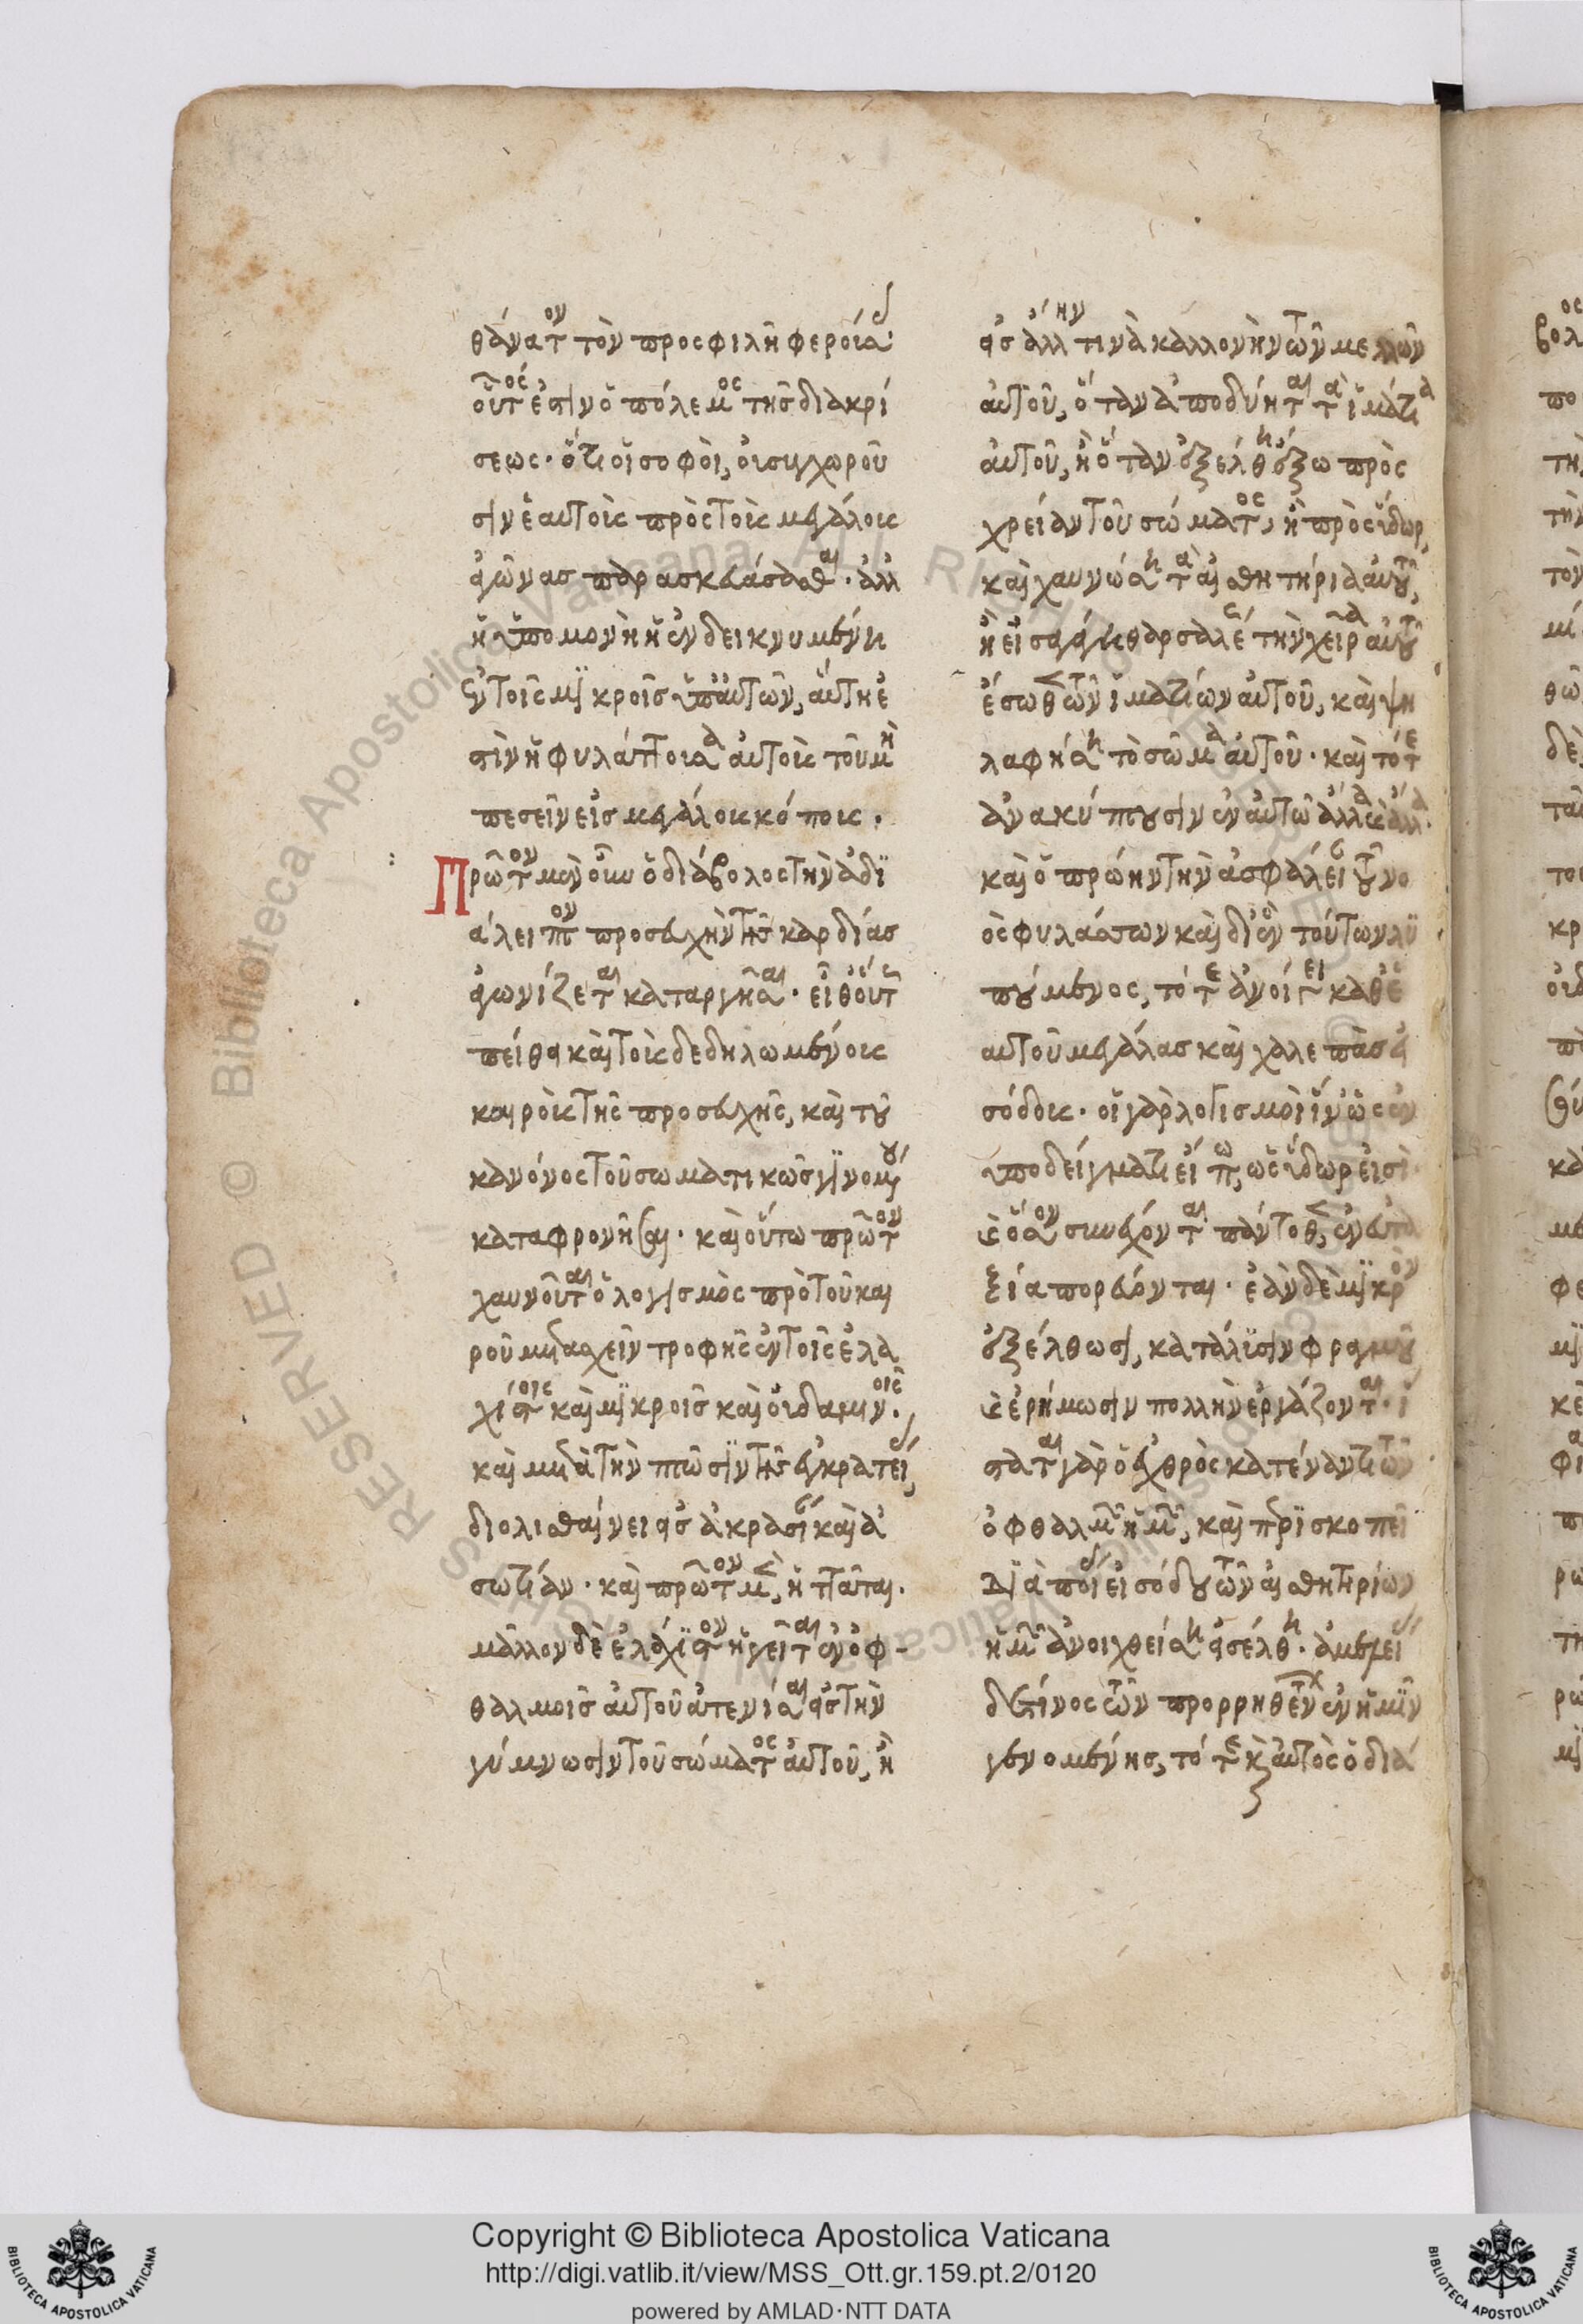 θάνατον τὸν προσφιλῆ φέρουσα·
οὗτός ἐστιν ὁ πόλεμος τῆς διακρί
σεως· ὅτι οἱ σοφοὶ, οἱ συγχωροῦ
σιν ἑαυτοὶς πρὸς τοὶς μεγάλοις
ἀγῶνας παρασκευάσασθαι· ἀλλ
ἡ ὑπομονὴ ἡ ἐνδεικνυμένη
ἐν τοῖς μικροῖς ὑπ' αὐτῶν, αὕτη ἐ
στὶν ἡ φυλάττουσα αὐτοὶς τοῦ μὴ
πεσεῖν εἰς μεγάλους κόπους.
Πρῶτον μὲν οὖν ὁ διάβολος τὴν ἀδι
άλειπτον προσευχὴν τῆς καρδίας
ἀγωνίζεται καταργῆσαι· εἶθ' οὕτως
πείθει καὶ τοὶς δεδηλωμένοις
καιροὶς τῆς προσευχῆς, καὶ τοῦ
κανόνος τοῦ σωματικῶς γινομένου
καταφρονῆσαι· καὶ οὕτω πρῶτον
χαυνοῦται ὁ λογισμὸς πρὸ τοῦ και
ροῦ μετασχεῖν τροφῆς ἐν τοῖς ἐλα
χίστοις καὶ μικροῖς καὶ οὐδαμινοῖς.
καὶ μετὰ τὴν πτῶσιν τῆς ἐγκρατείας,
διολισθαίνει εἰς ἀκρασίαν καὶ ἀ
σωτίαν· καὶ πρῶτον μὲν, ἡττᾶται.
μᾶλλον δὲ ἐλάχιστον ἡγεῖται ἐν ὀφ-
θαλμοῖς αὐτοῦ ἀτενίσαι εἰς τὴν
γύμνωσιν τοῦ σώματος αὐτοῦ, ἢ
εἰς ἄλλην τινὰ καλλονὴν τῶν μελλῶν
αὐτοῦ, ὅταν ἀποδύηται τὰ ἱμάτια
αὐτοῦ, ἢ ὅταν ἐξέλθῃ ἔξω πρὸς
χρείαν τοῦ σώματος, ἢ πρὸς ὕδωρ,
καὶ χαυνώσῃ τὰ αἰσθητήρια αὐτοῦ,
ἢ εἰσαγάγῃ θαρσαλέως τὴν χεῖρα αὐτοῦ
ἔσωθεν τῶν ἱματίων αὐτοῦ, καὶ ψη
λαφήσῃ τὸ σῶμα αὐτοῦ· καὶ τότε
ἀνακύπτουσιν ἐν αὐτῷ ἄλλα καὶ ἄλλα.
καὶ ὁ πρώην τὴν ἀσφάλειαν τοῦ νο
ὸς φυλάσσων καὶ δι' ἓν τούτων λυ
πούμενος, τότε ἀνοίγει καθ' ἑ
αυτοῦ μεγάλας καὶ χαλεπὰς εἰ
σόδοις· οἱ γὰρ λογισμοὶ ἵν' ὡς ἐν
ὑποδείγματι εἴπω, ὡς ὕδωρ εἰσὶ·
καὶ ὅσον συνέχονται πάντοθεν, ἐν εὐτα
ξίᾳ πορεύονται· ἐὰν δὲ μικρὸν
ἐξέλθωσι, κατάλυσιν φραγμοῦ
καὶ ἐρήμωσιν πολλὴν ἐργάζονται· ἵ
σταται γὰρ ὁ ἐχθρὸς κατέναντι τῶν
ὀφθαλμῶν ἡμῶν, καὶ περισκοπεῖ
διὰ ποίας εἰσόδου τῶν αἰσθητηρίων
ἡμῶν ἀνοιχθείσης εἰσέλθῃ· ἀμελείας
δέ τινος τῶν προρρηθέντων ἐν ἡμῖν
γενομένης, τότε καὶ αὐτὸς ὁ διά